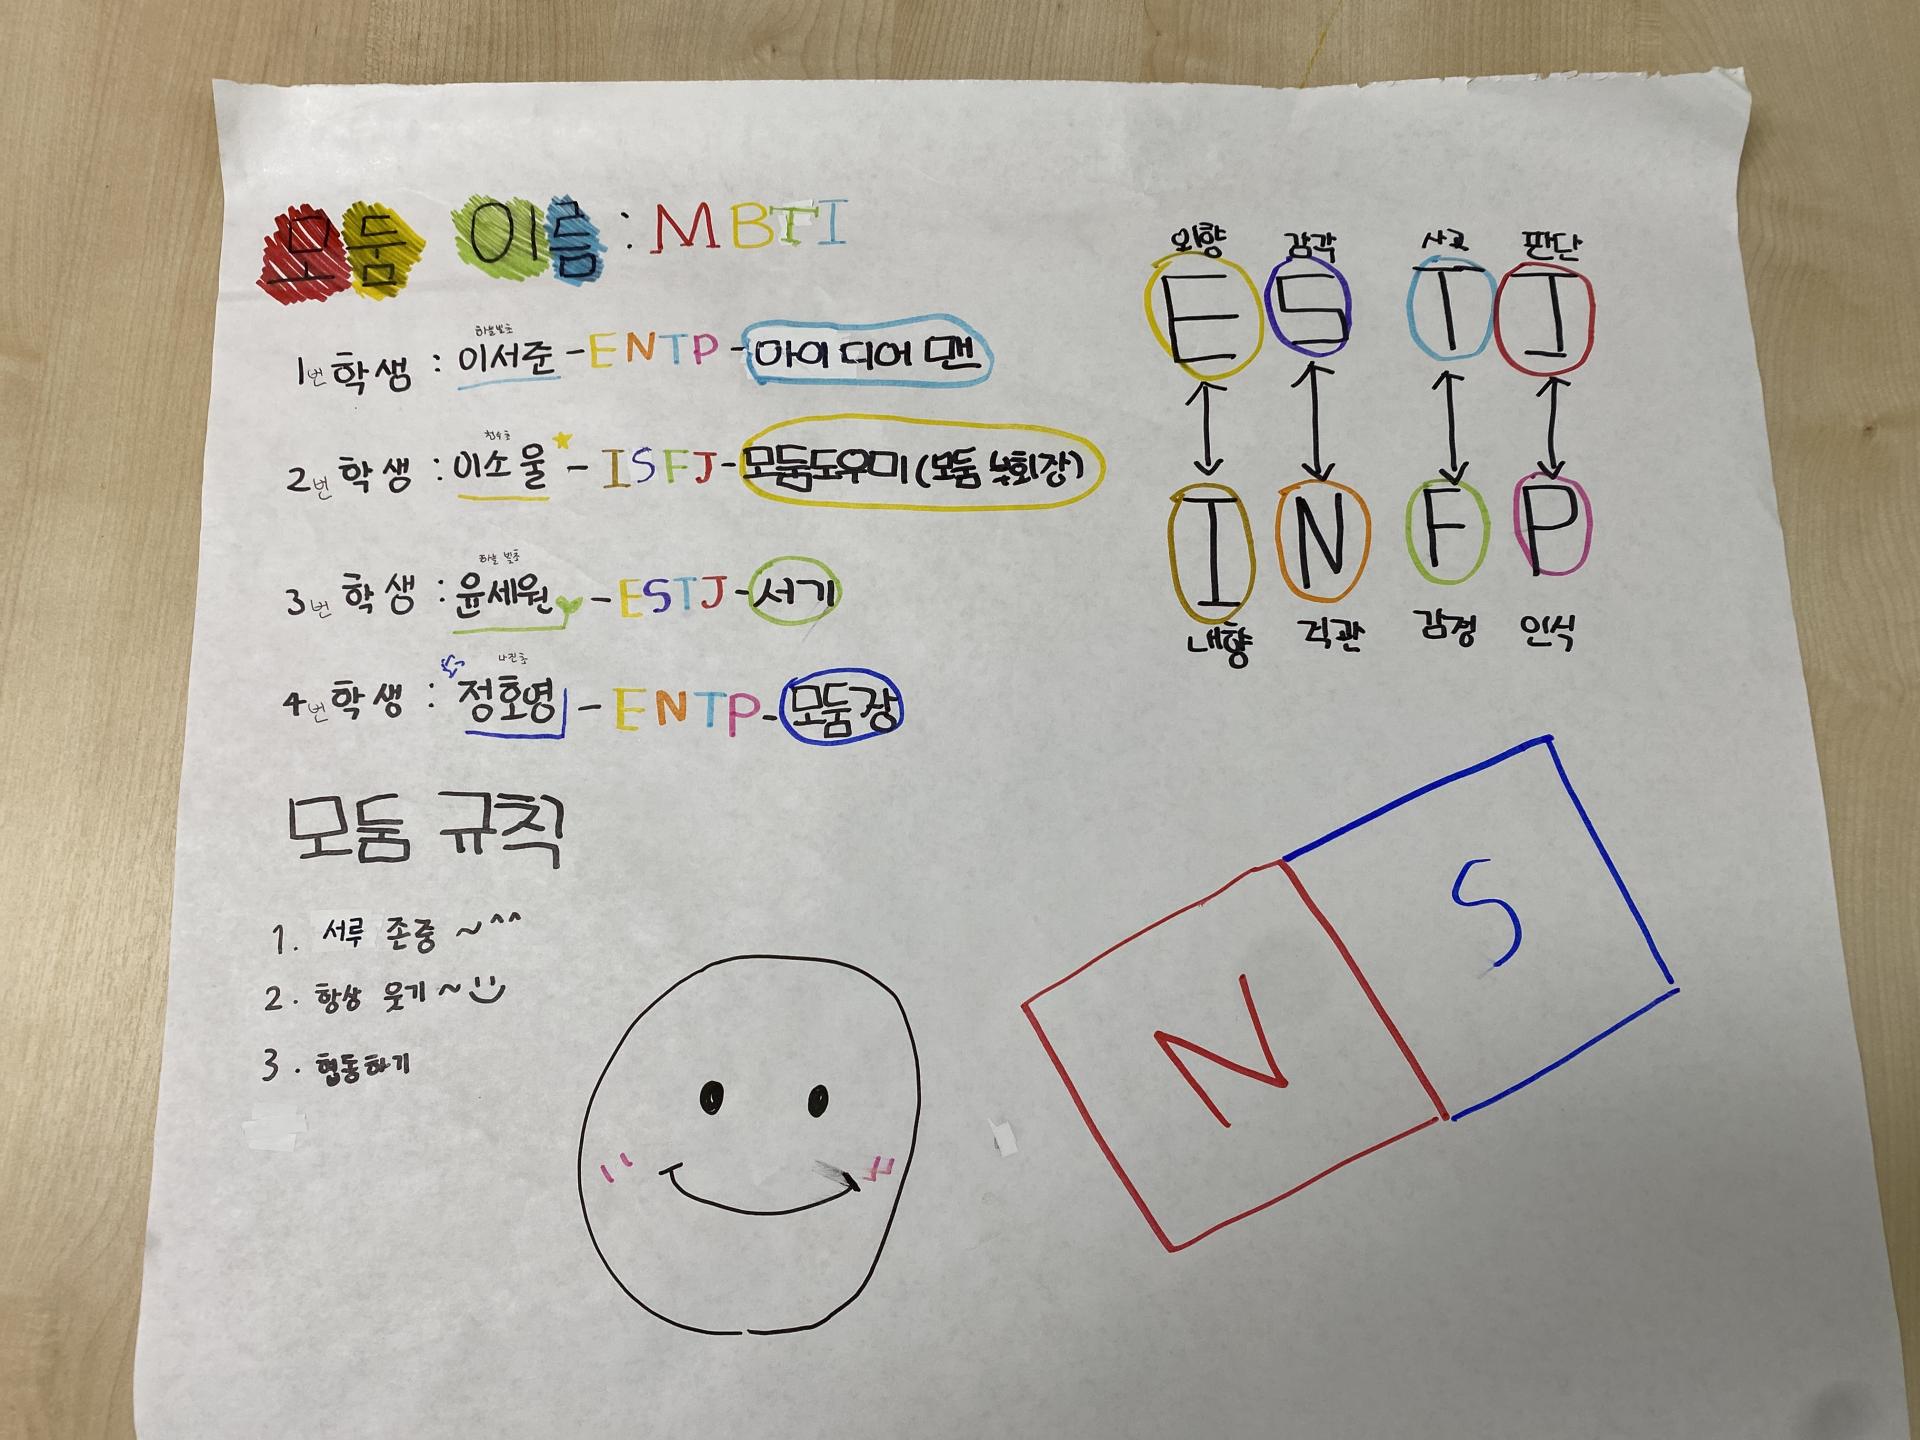 모둠 이름 : MBTI
하늘빛초
1번 학생 : 이서준 - ENTP - 아이디어 맨
천수초
2번 학생 : 이소울 - ISFJ - 모둠도우미 (모둠 부회장)
하늘 빛초
3번 학생 : 윤세원 - ESTJ - 서기
나진초
4번 학생 : 정호영 - ENTP - 모둠장
모둠 규칙
1. 서루 존중 ~^^
2. 항상 웃기~
3. 협동하기
외향 감각 사고 판단
E S T J
I N F P
내향 직관 감정 인식
N S